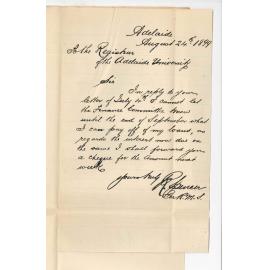 Adelaide
August 24th 1899
To the Registrar
of the Adelaide University
Sir
In reply to your
letter of July 10th I cannot let
the Finance Committee know
until the end of September what
I can pay off of my loans, as
regards the interest now due on
the same I shall forward you
a cheque for the Amount next
week
yours truly
R Spencer